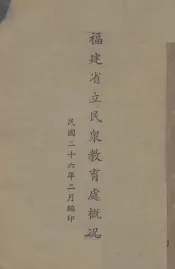 福建省立民眾教育處概況
民國二十六年二月編印